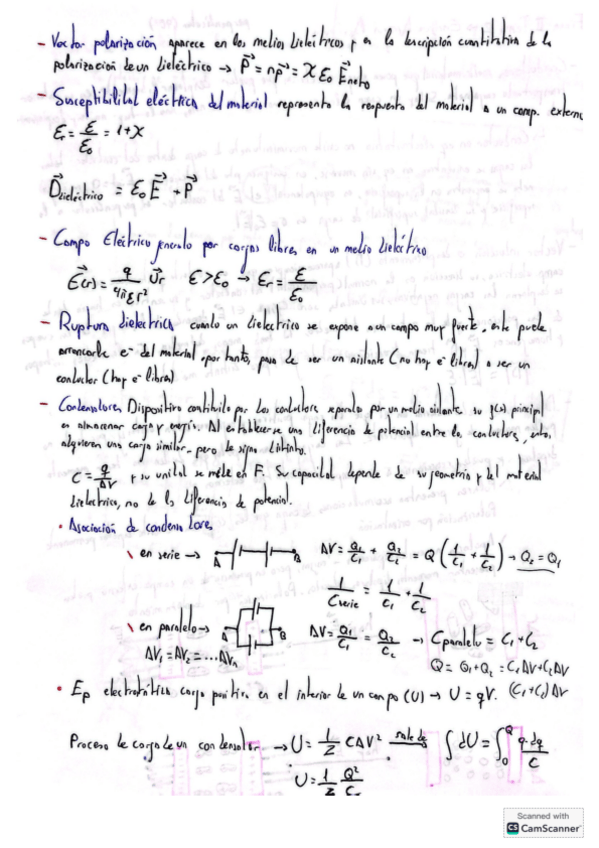 - Vector polarización aparece en los medios dieléctricos y es la descripción cuantitativa de la
polarización de un dieléctrico → P⃗ = np⃗ = χ ε₀ E⃗neto
- Susceptibilidad eléctrica del material representa la respuesta del material a un camp. extern
εr = ε/ε₀ = 1+χ
D⃗dieléctrico = ε₀ E⃗ + P⃗
- Campo Eléctrico generado por cargas libres en un medio dieléctrico
E⃗(r) = q/4πεr² u⃗r   ε > ε₀ → εr = ε/ε₀
- Ruptura dieléctrica cuando un dieléctrico se expone a un campo muy fuerte, este puede
arrancarle e⁻ del material y por tanto, pasa de ser un aislante (no hay e⁻ libres) a ser un
conductor (hay e⁻ libres)
- Condensadores Dispositivo constituido por dos conductores separados por un medio aislante su f(x) principal
es almacenar carga y energía. Al establecerse una diferencia de potencial entre los conductores, estos
adquieren una carga similar, pero de signo distinto.
C = q/ΔV y su unidad se mide en F. Su capacidad depende de su geometría y del material
dieléctrico, no de la diferencia de potencial.
• Asociación de condensadores
\ en serie → A B ΔV = Q₁/C₁ + Q₂/C₂ = Q (1/C₁ + 1/C₂) → Q₂ = Q₁
1/Cserie = 1/C₁ + 1/C₂
\ en paralelo → A B ΔV = Q₁/C₁ = Q₂/C₂ → Cparalelo = C₁ + C₂
ΔV₁ = ΔV₂ = ... ΔVn   Q = Q₁ + Q₂ = C₁ΔV + C₂ΔV
• Ep electrostática carga positiva en el interior de un campo (U) → U = qV. (C₁+C₂)ΔV
Proceso de carga de un condensador → U = 1/2 CΔV² sale de ∫dU = ∫₀Q q·dq/C
U = 1/2 Q²/C
Scanned with
CS CamScanner